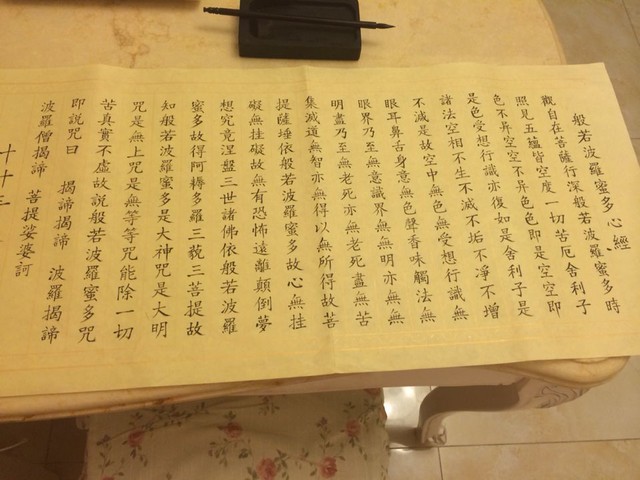 般若波羅蜜多心經
觀自在菩薩行深般若波羅蜜多時
照見五蘊皆空度一切苦厄舍利子
色不异空空不异色色即是空空即
是色受想行識亦復如是舍利子是
諸法空相不生不滅不垢不凈不增
不減是故空中無色無受想行識無
眼耳鼻舌身意無色聲香味觸法無
眼界乃至無意識界無無明亦無無
明盡乃至無老死亦無老死盡無苦
集滅道無智亦無得以無所得故菩
提薩埵依般若波羅蜜多故心無挂
礙無挂礙故無有恐怖遠離顛倒夢
想究竟涅盤三世諸佛依般若波羅
蜜多故得阿耨多羅三藐三菩提故
知般若波羅蜜多是大神咒是大明
咒是無上咒是無等等咒能除一切
苦真實不虛故說般若波羅蜜多咒
即說咒曰 揭諦揭諦 波羅揭諦
波羅僧揭諦 菩提娑婆訶